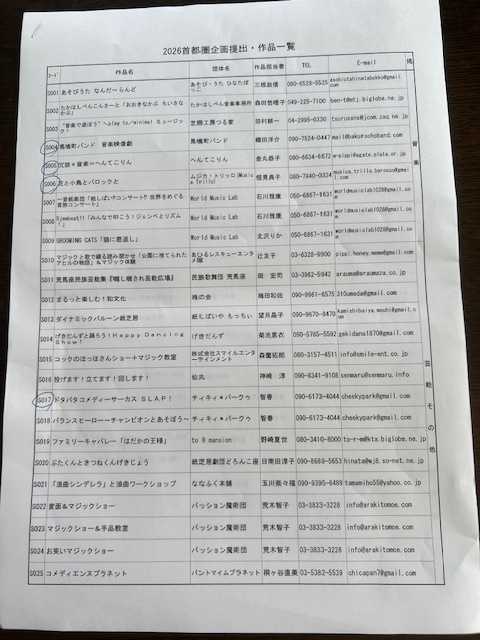 2026首都圏企画提出・作品一覧
コード 作品名 団体名 作品担当者 TEL E-mail
S001 あそびうた なんだーらんど あそび・うた ひなたぼっこ
S002 たかはしべんこんさーと「おおきなかぶ ちいさなかぶ」 たかはしべん音楽事務所 049-225-7100
S003 "音楽で遊ぼう"~play to/minimal ミュージック! 芝居工房つる家 田村 04-2995-0330
S004 馬喰町バンド 音楽映像劇 馬喰町バンド 織田洋介 090-7624-0447
S005 冗談＊音楽＝へんてこりん へんてこりん 金丸恭子 090-6634-6672
S006 虫と小鳥とバロックと ムジカ・トリッロ(Musica Trillo) 090-7840-0324 musica.trillo.barocco@gmail.com
S007 一音組楽団「紙しばいコンサート!! 世界をめぐる音旅コンサート」 World Music Lab 石川雅康 050-6867-1631 worldmusiclab1028@gmail.com
S008 Djembeat!!「みんなで叩こう！ジェンベとリズム！」 World Music Lab 石川雅康 050-6867-1631 worldmusiclab1028@gmail.com
S009 GROOVING CATS「猫に恩返し」 World Music Lab 北沢りか 050-6867-1631 worldmusiclab1028@gmail.com
S010 マジックと歌で綴る読み聞かせ「公園に捨てられたアヒルの物語」＆マジック体験 あひるレスキューエンタメ隊 辻友子 03-6328-9900
S011 荒馬座民族芸能集『囃し囃され芸能広場』 民族歌舞団 荒馬座 宏司 03-3962-5942 arauma@araumaza.co.jp
S012 まるっと楽しむ！和文化 090-9961-6575 310umeda@gmail.com
S013 ダイナミックバルーン紙芝居 紙しばいや もっちぃ 望月晶子 090-9670-9470 kamishibaiya.mochi@gmail.com
S014 げきだんずと踊ろう！Happy Dancing Show！ げきだんず 菊池恵衣 090-5765-5592 gekidans1870@gmail.com
S015 コックのほっほさんショー＋マジック教室 株式会社スマイルエンターテインメント 森重拓郎 080-3157-4511 info@smile-ent.co.jp
S016 投げます！立てます！回します！ 仙丸 神崎 淳 090-8341-9108 senmaru@senmaru.info
S017 ドタバタコメディーサーカス SLAP！ チィキィ＊パーク♥ 智春 090-6173-4044 cheekypark@gmail.com
S018 バランスヒーロー～チャンピオンとあそぼう～ チィキィ＊パーク♥ 智春 090-6173-4044 cheekypark@gmail.com
S019 ファミリーキャバレー「はだかの王様」 to R mansion 野崎夏世 080-3410-6000 to-r-m@ktx.biglobe.ne.jp
S020 ぶたくんときつねくんげきじょう 紙芝居劇団どろんこ座 日南田淳子 090-8689-5653 hinata@wj8.so-net.ne.jp
S021 「浪曲シンデレラ」と浪曲ワークショップ ななふく本舗 玉川奈々福 090-9395-8489 tamamiho55@yahoo.co.jp
S022 変面＆マジックショー パッション魔術団 荒木智子 03-3833-3228 info@arakitomoe.com
S023 マジックショー＆手品教室 パッション魔術団 荒木智子 03-3833-3228 info@arakitomoe.com
S024 お笑いマジックショー パッション魔術団 荒木智子 03-3833-3228 info@arakitomoe.com
S025 コメディエンスプラネット パントマイムプラネット 桐ヶ谷直美 03-5382-5539 chicapan7@gmail.com
音楽
芸能その他